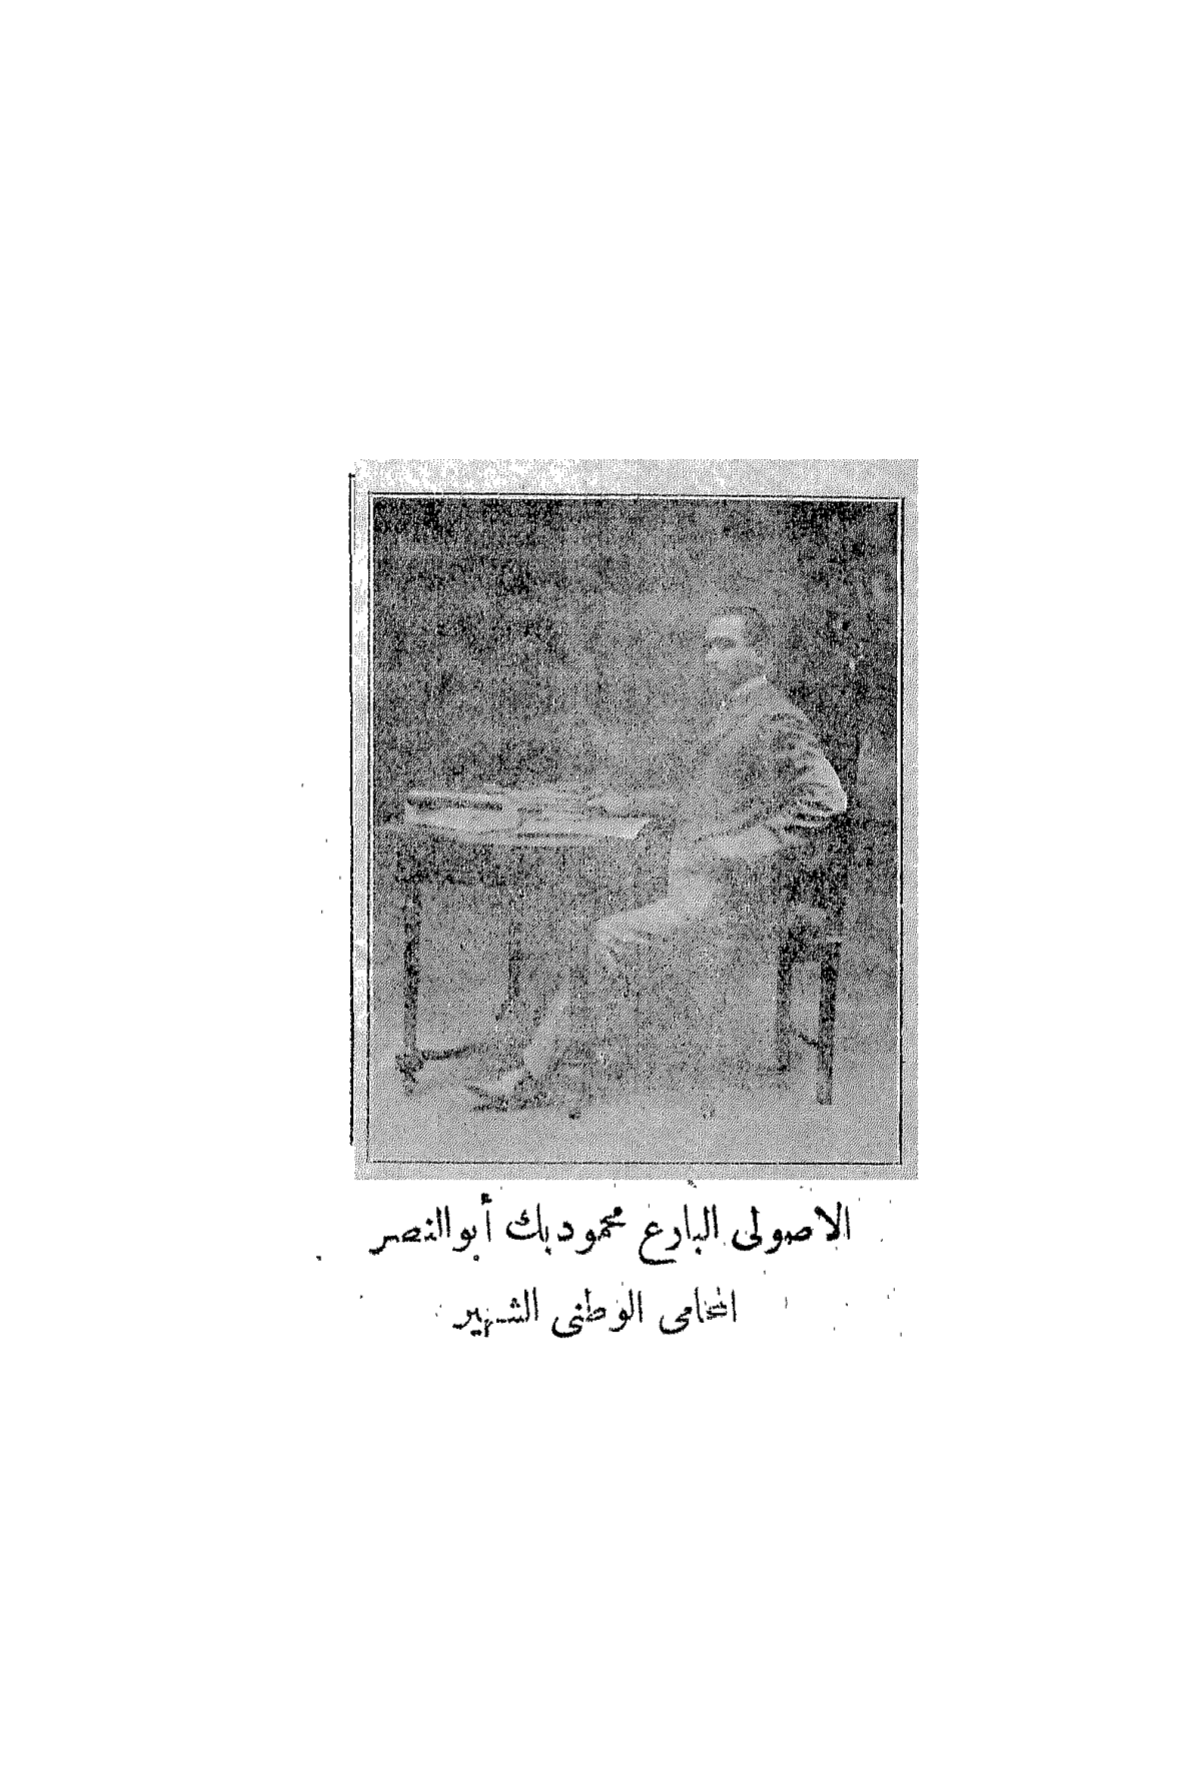 الاصولى البارع محمود بك أبو النصر
المحامى الوطنى الشهير